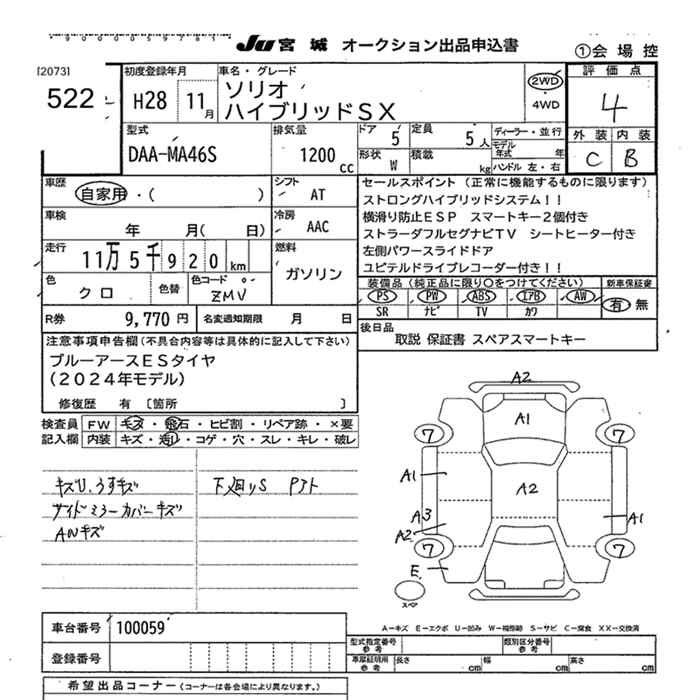 JU宮城 オークション出品申込書
①会場控
[2073]
522
初度登録年月
H28 11月
車名・グレード
ソリオ
ハイブリッドSX
2WD
4WD
評価点
4
外装 内装
C B
型式
DAA-MA46S
排気量
1200cc
ドア 5
定員 5人
形状 W
積載 kg
ディーラー・並行
モデル年式 年
ハンドル 左・右
車歴
自家用・( )
シフト
AT
車検
年 月( 日)
冷房
AAC
走行
11万5千920km
燃料
ガソリン
色
クロ
色替
色コード
ZMV
R券 9,770円
名変通知期限 月 日
セールスポイント(正常に機能するものに限ります)
ストロングハイブリッドシステム!!
横滑り防止ESP スマートキー2個付き
ストラーダフルセグナビTV シートヒーター付き
左側パワースライドドア
ユピテルドライブレコーダー付き!!
装備品(純正品に限り○をつけてください)
新車保証書
PS PW ABS エアB AW
SR ナビ TV カワ
有 無
後日品
取説 保証書 スペアスマートキー
注意事項申告欄(不具合内容等は具体的に記入して下さい)
ブルーアースESタイヤ
(2024年モデル)
修復歴 有 [箇所 ]
検査員記入欄
FW キズ・飛石・ヒビ割・リペア跡・×要
内装 キズ・汚れ・コゲ・穴・スレ・キレ・破レ
キズU、うすキズ
サイドミラーカバーキズ
ANキズ
下廻りS
A2
A1
7
7
A1
A2
A3
A2
A1
7
7
E
スペア
A―キズ E―エクボ U―凹み W―補修跡 S―サビ C―腐食 XX―交換済
車台番号 100059
登録番号
型式指定番号 参考
類別区分番号 参考
車庫証明用 参考
長さ cm
幅 cm
高さ cm
希望出品コーナー(コーナーは各会場により異なります。)